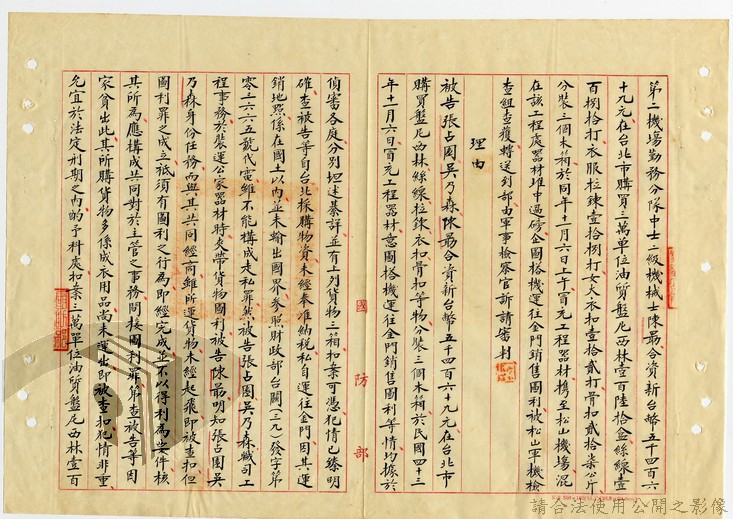 第二機場勤務分隊中士二級機械士陳最合資新台幣五千四百六
十九元在台北市購買三萬單位油質盤尼西林壹百陸拾盒絲線壹
百捌拾打衣服拉鍊壹拾捌打女大衣扣壹拾貳打骨扣貳拾柒公斤
分裝三個木箱於同年十一月六日上午百元工程器材機至松山機場混
在該工程處器材堆中過磅企圖搭機運往金門銷售圖利被松山軍機檢
查組查獲轉送到部由軍事檢察官訴請審判
理由
被告張占圍吳乃森陳最合資新台幣五千四百六十九元在台北市
購買盤尼西林絲線拉鍊衣扣骨扣等物分裝三個木箱於民國四十三
年十一月六日百元工程器材意圖搭機運往金門銷售圖利等情均據於
國防部
偵審各庭分別坦述綦詳並有上列貨物三箱扣案可憑犯情已臻明
確查被告等自台北採購物資未經奉准納稅私自運往金門因其運
銷地點係在國土以內並未輸出國界參照財政部台關(三九)發字第
零二六六五號代電雖不能構成走私罪然被告張占圍吳乃森職司工
程事務於裝運公家器材時夾帶貨物圖利被告陳最明知張占圍吳
乃森身份任務而與其共同經商雖所運貨物未經起飛即被查扣但
圖利罪之成立祇須有圖利之行為即經完成並不以得利為要件核
其所為應構成共同對於主管之事務間接圖利罪第查被告等因
家貧出此其所購貨物多係成衣用品尚未運出即被查扣犯情非重
允宜於法定刑期之內酌予科處扣案三萬單位油質盤尼西林壹百
請合法使用公開之影像